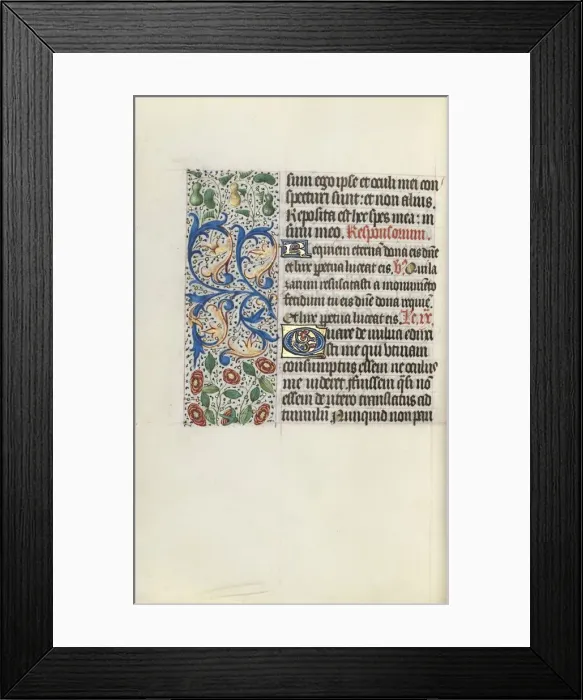 sum ego ipse et oculi mei con
specturi sunt: et non alius.
Reposita est hec spes mea: in
sinu meo. Responsorium.
Requiem eternā dona eis dn̄e
et lux ꝑpetua luceat eis. ℣. Qui la
zarum resuscitasti a monumēto
fetidum tu eis dn̄e dona requiē.
Et lux ꝑpetua luceat eis. Le.ix.
Quare de vulva eduxi
sti me qui utinam
consumptus essem ne oculus
me videret. fuissem q̄si nō
essem de utero translatus ad
tumulū. Nunquid non pau